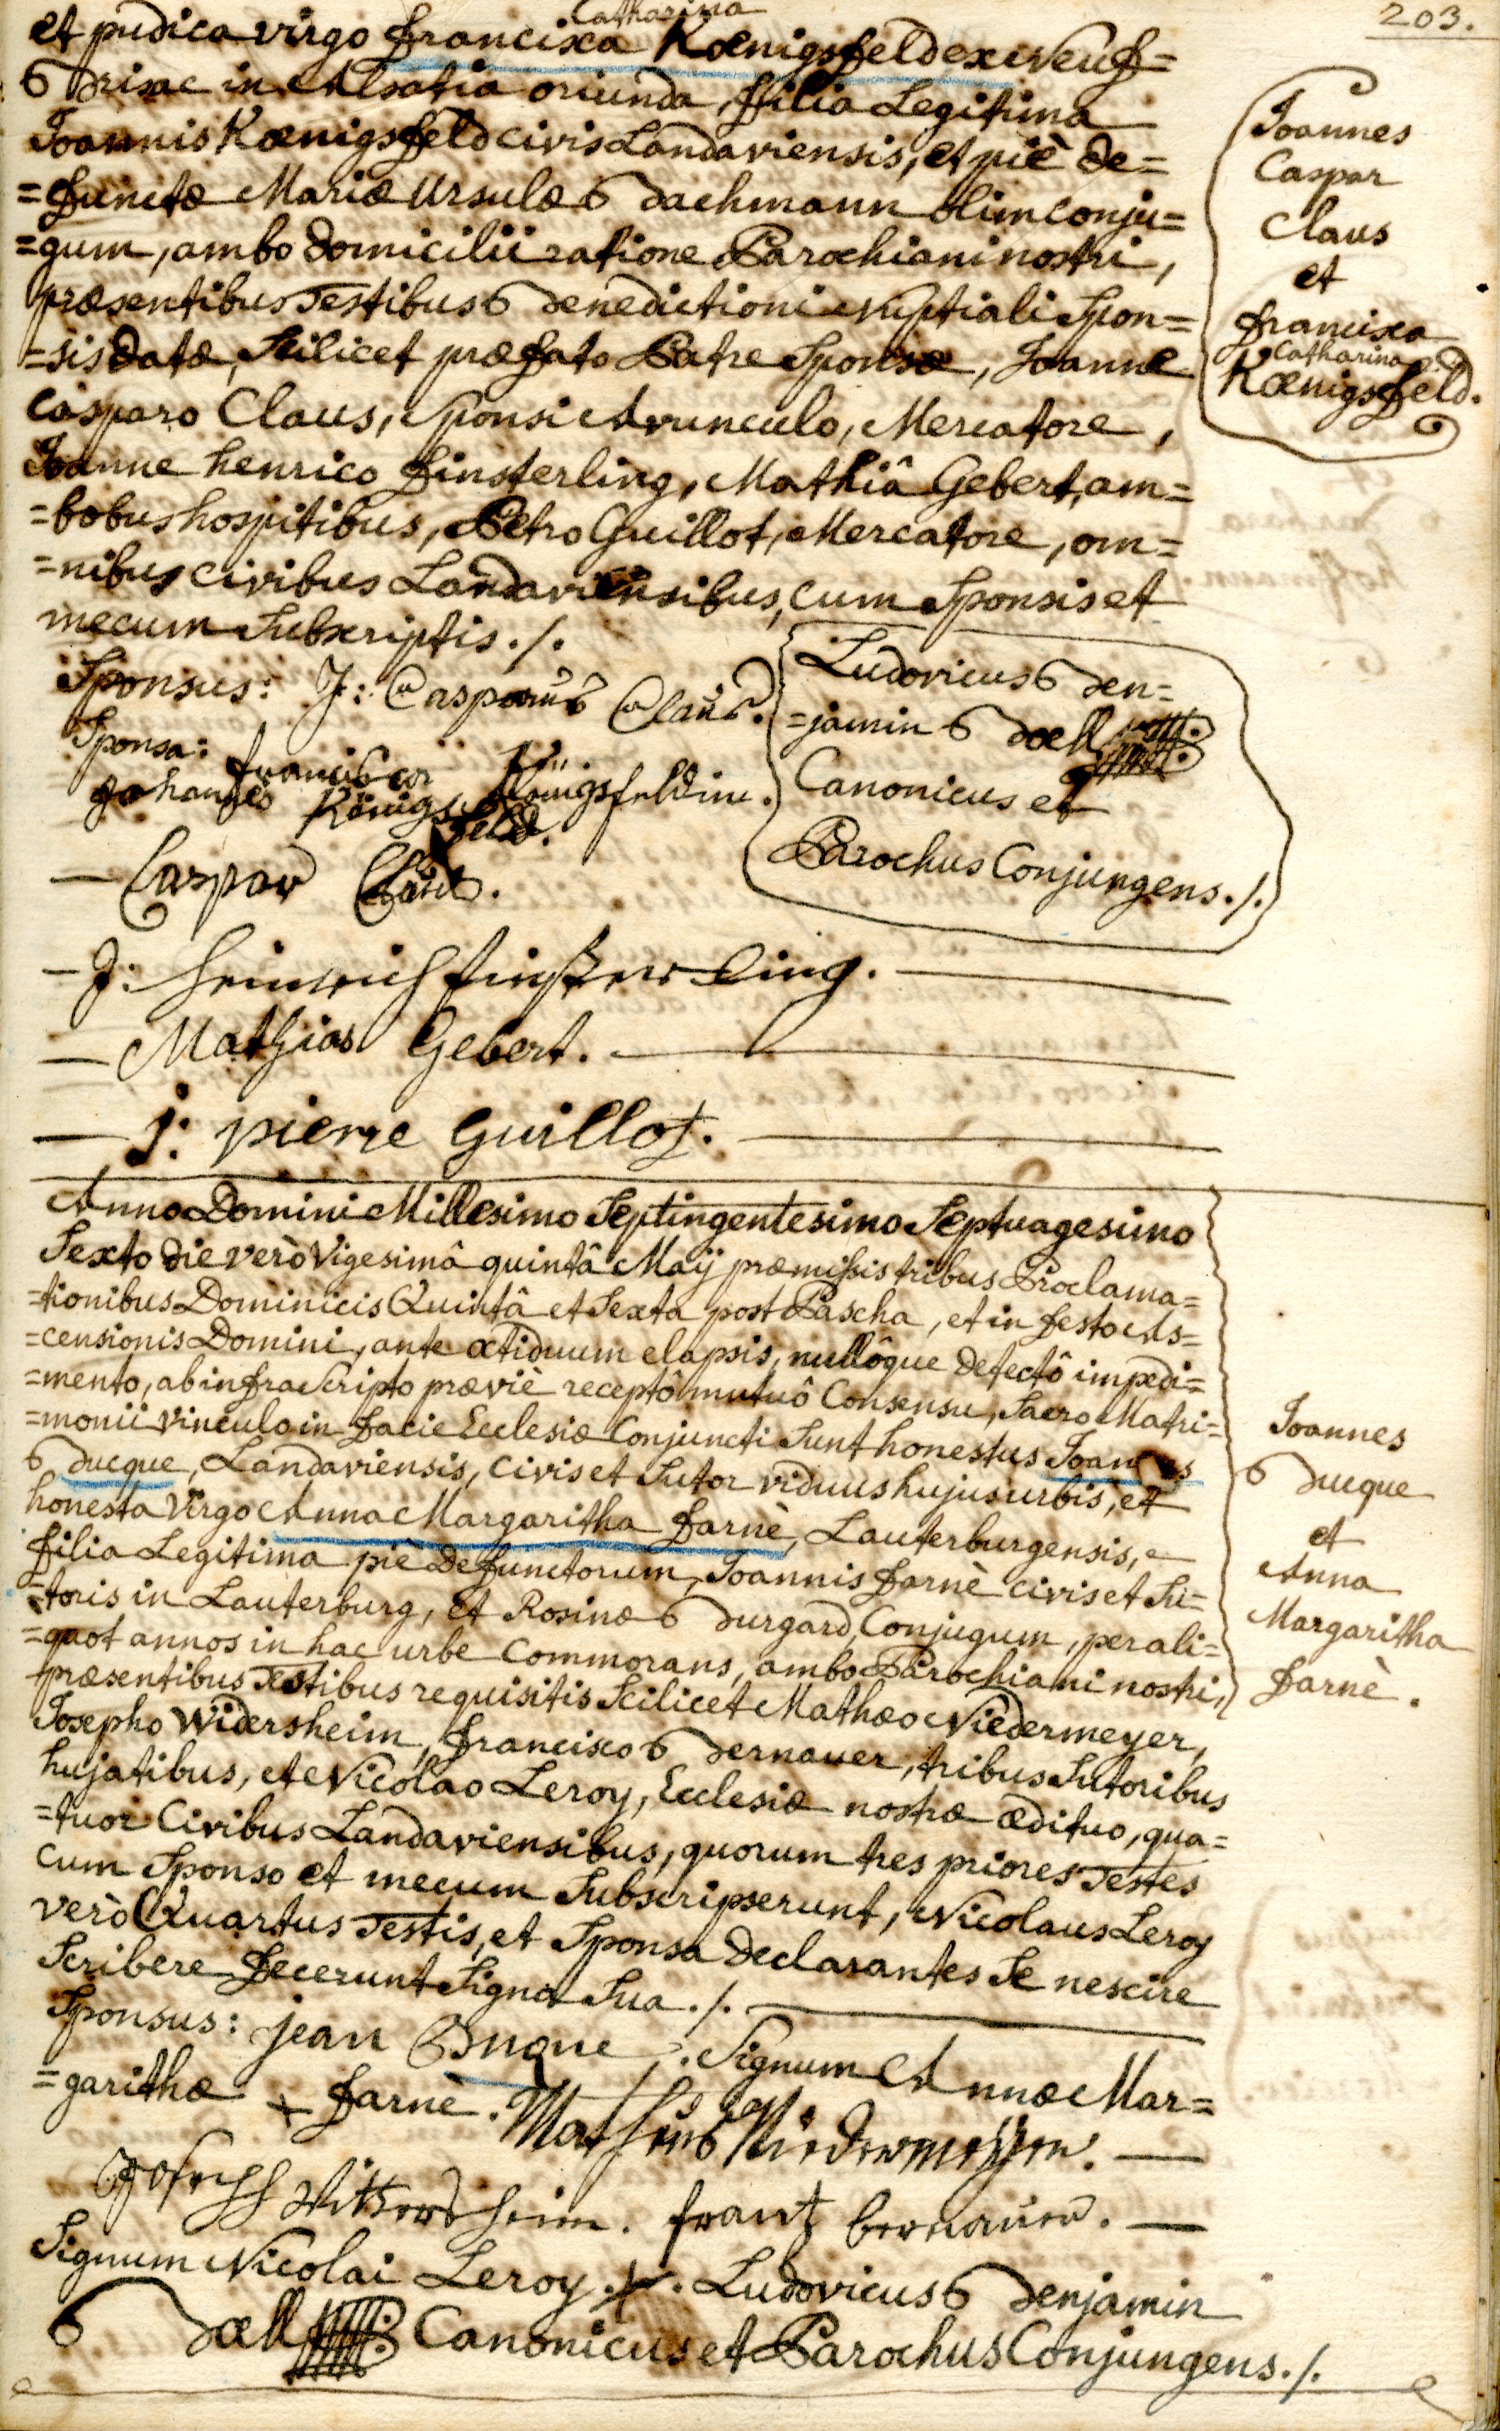 203.
Catharina
et pudica virgo Francisca Kœnigsfeld ex Neuf=
Brisac in Alsatia oriunda, filia Legitima
Joannis Kœnigsfeld civis Landaviensis, et piè de=
=functæ Mariæ Ursulæ Bachmann olim conju=
=gum, ambo domicilii ratione Parochiani nostri,
præsentibus Testibus Benedictioni Nuptiali Spon=
=sis datæ, Scilicet præfato Patre Sponsæ, Joanne
Casparo Claus, Sponsi Avunculo, Mercatore,
Joanne henrico Finsterling, Mathiâ Gebert, am=
=bobus hospitibus, Petro Guillot, Mercatore, om=
=nibus civibus Landaviensibus, cum Sponsis et
mecum Subscriptis./.
Joannes
Caspar
Claus
et
Francisca
Catharina
Kœnigsfeld.
Sponsus: J: Casparus Claus.
Sponsa: Francisca Königsfeldin.
Johanges Königsfeld.
– Caspar Claus.
Ludovicus Ben=
=jamin Bœll
Canonicus et
Parochus Conjungens./.
– J: Heinrich finsterling.
– Mathias Gebert.
– j: pierre Guillot.
Anno Domini Millesimo Septingentesimo Septuagesimo
Sexto die verò Vigesimâ quintâ Maÿ præmissis tribus Proclama=
=tionibus Dominicis Quintâ et Sexta post Pascha, et in festo As=
=censionis Domini, ante octiduum elapsis, nullôque detectô impedi=
=mento, ab infra Scripto præviè receptô mutuô Consensu, Sacro Matri=
=monii Vinculo in facie Ecclesiæ Conjuncti Sunt honestus Joannes
Bucque, Landaviensis, civis et Sutor viduus hujus urbis, et
honesta Virgo Anna Margaritha Farnè, Lauterburgensis,
filia Legitima piè Defunctorum, Joannis Farnè civis et Su=
=toris in Lauterburg, et Rosinæ Burgard, Conjugum, per ali=
=quot annos in hac urbe Commorans, ambo Parochiani nostri,
præsentibus Testibus requisitis Scilicet Mathæo Niedermeyer,
Josepho Widersheim, Francisco Bernauer, tribus Sutoribus
hujatibus, et Nicolao Leroy, Ecclesiæ nostræ ædituo, qua=
=tuor Civibus Landaviensibus, quorum tres priores Testes
cum Sponso et mecum Subscripserunt, Nicolaus Leroy
verò Quartus Testis, et Sponsa declarantes Se nescire
Scribere fecerunt Signa Sua./.
Joannes
Bucque
et
Anna
Margaritha
Farnè.
Sponsus: jean Buque. Signum Annæ Mar=
=garithæ + Farnè. Matheus Niedermeyer. –
Joseph Wittersheim. frantz bernauer. –
Signum Nicolai Leroy. +. Ludovicus Benjamin
Bœll Canonicus et Parochus Conjungens./.